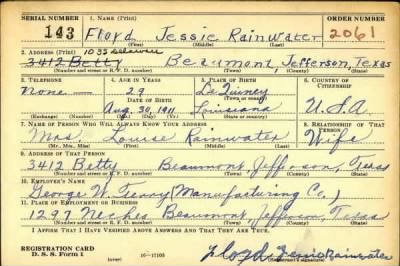 SERIAL NUMBER 1. NAME (Print) ORDER NUMBER
143 Floyd Jessie Rainwater 2061
(First) (Middle) (Last)
2. ADDRESS (Print) 1035
3412 Betty Beaumont, Jefferson, Texas
(Number and street or R. F. D. number) (Town) (County) (State)
3. TELEPHONE 4. AGE IN YEARS 5. PLACE OF BIRTH 6. COUNTRY OF CITIZENSHIP
none 29 De Quincy
DATE OF BIRTH
Aug. 30, 1911 Louisiana U.S.A
(Exchange) (Number) (Mo.) (Day) (Yr.) (State or country)
7. NAME OF PERSON WHO WILL ALWAYS KNOW YOUR ADDRESS 8. RELATIONSHIP OF THAT PERSON
Mrs. Louise Rainwater Wife
(Mr., Mrs., Miss) (First) (Middle) (Last)
9. ADDRESS OF THAT PERSON
3412 Betty Beaumont, Jefferson, Texas
(Number and street or R. F. D. number) (Town) (County) (State)
10. EMPLOYER'S NAME
George W. (Manufacturing Co.)
11. PLACE OF EMPLOYMENT OR BUSINESS
1297 Neches Beaumont, Jefferson, Texas
(Number and street or R. F. D. number) (Town) (County) (State)
I AFFIRM THAT I HAVE VERIFIED ABOVE ANSWERS AND THAT THEY ARE TRUE.
REGISTRATION CARD
D. S. S. Form 1 (over) 16—17105 Floyd Jessie Rainwater
(Registrant's signature)